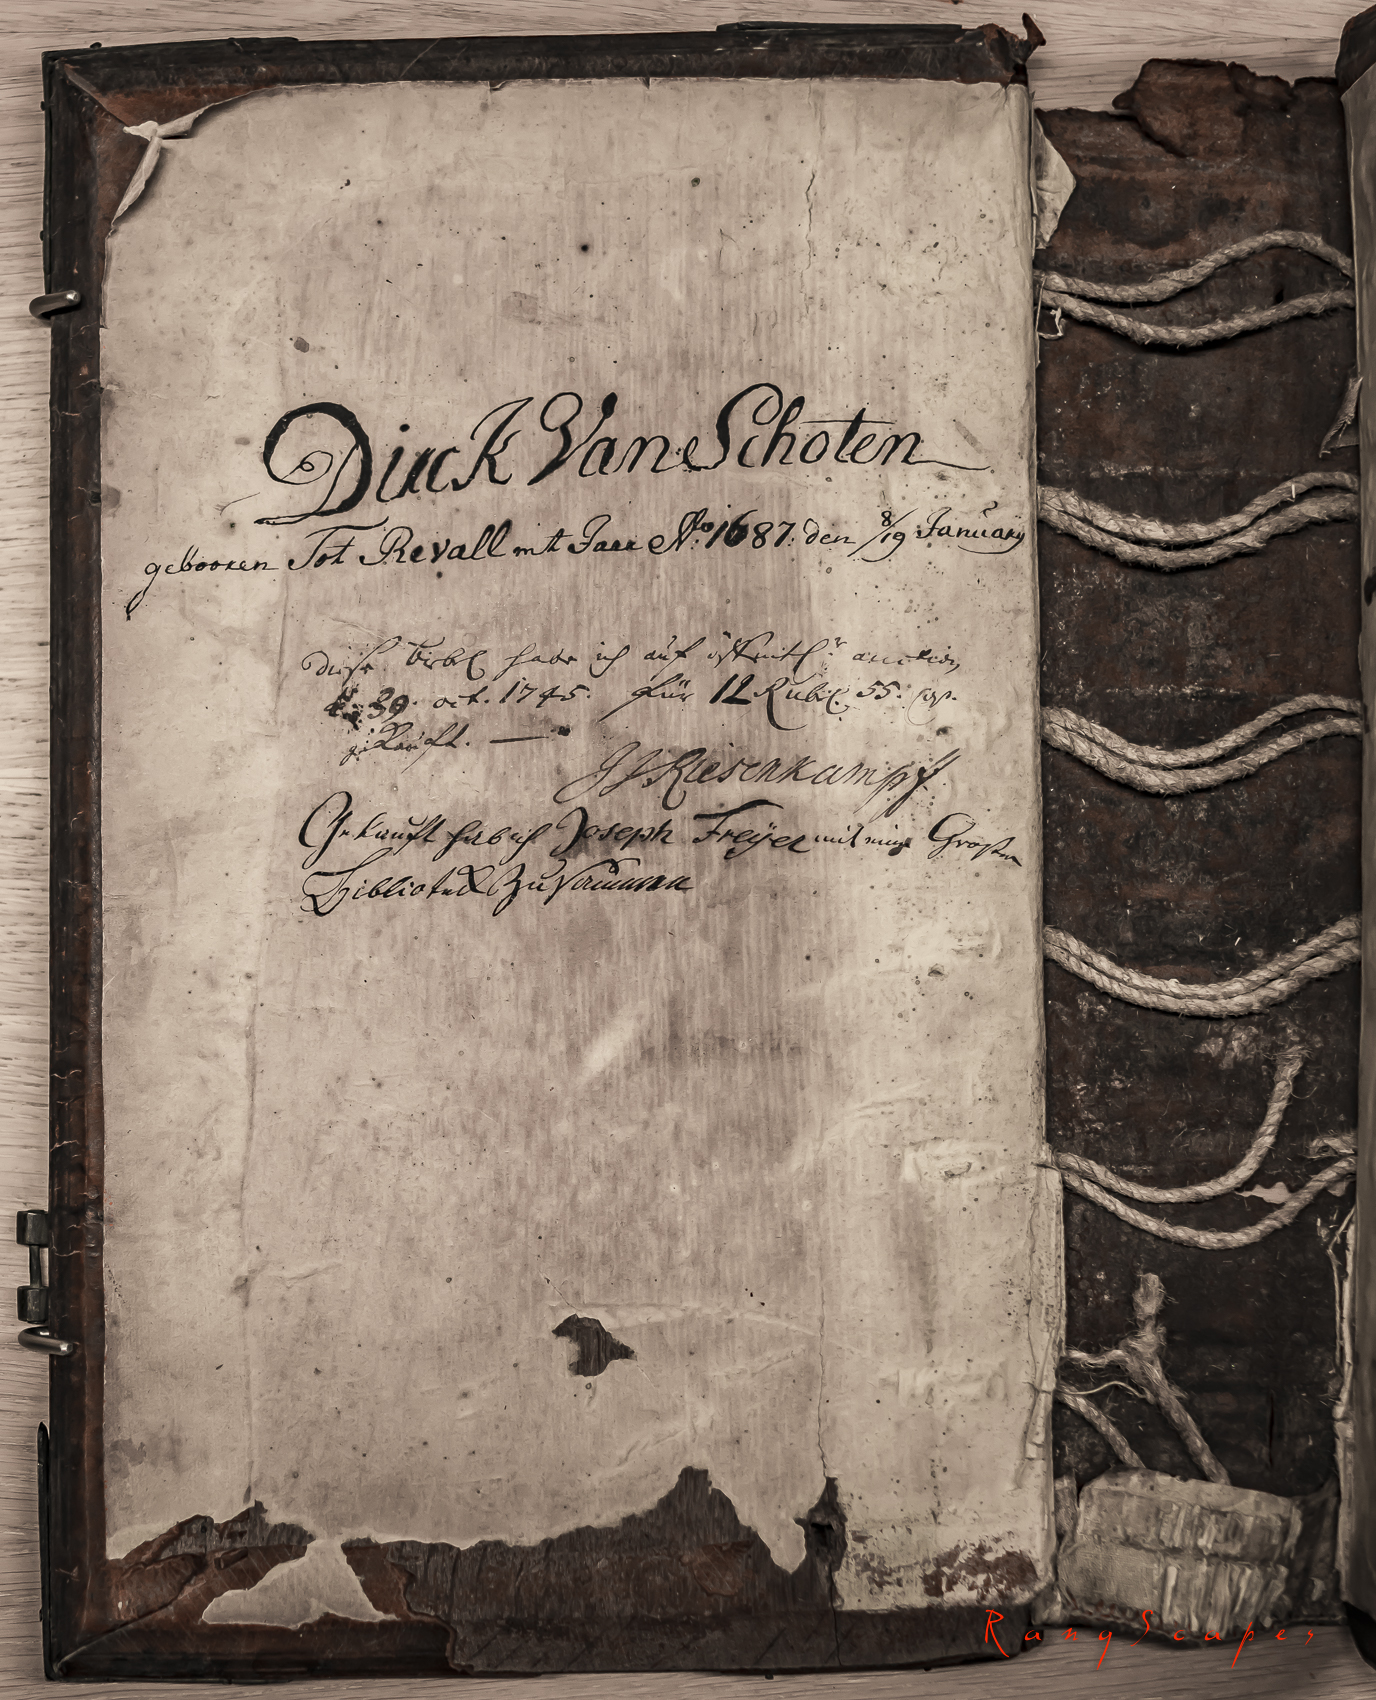 Dirck Van Schoten
gebooren Tot Revall int Jaer Aº 1687. den 8/19 January
diese Bibel habe ich auf öffentl. auction
d. 30. oct. 1745. für 12 Rubl. 55. Cop.
gekauft. —
JJ Riesenkampff
Gekauft hab ich Joseph Freÿer mit einer Grosen
Biblioteck Zu sammen
RangScapes